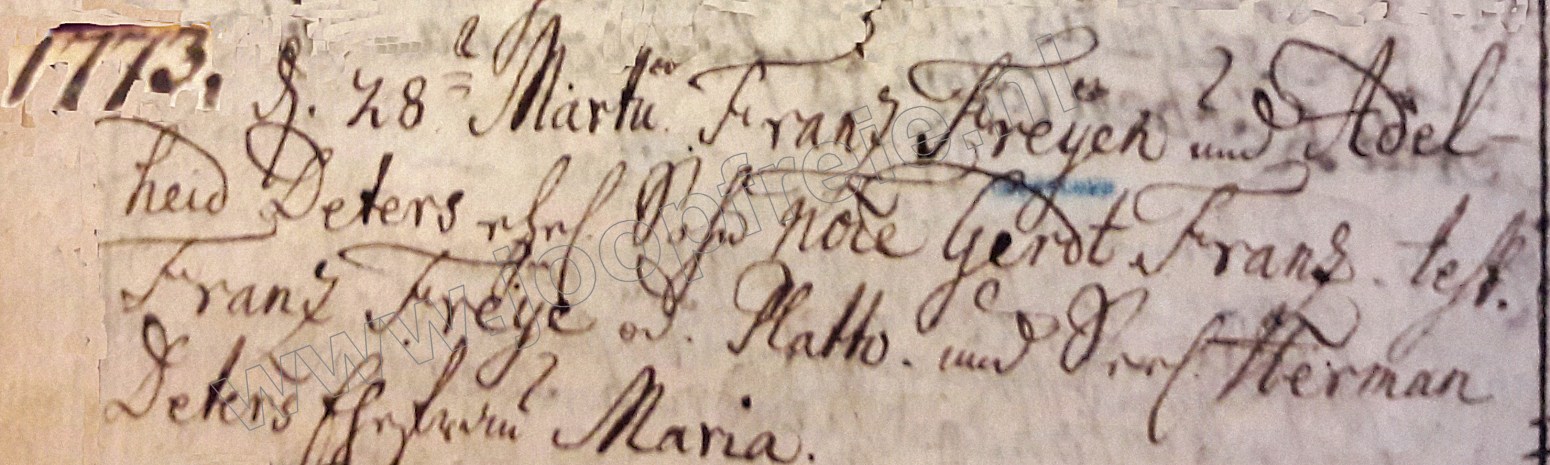 1773. d. 28 Martii Franz Freyen und Adel-
heid Deters ehel. Sohn Noe Gerdt Franz. test.
Franz Freye od. Platto. und Seel. Herman
Deters Ehefrau Maria.
www.joopfreie.nl